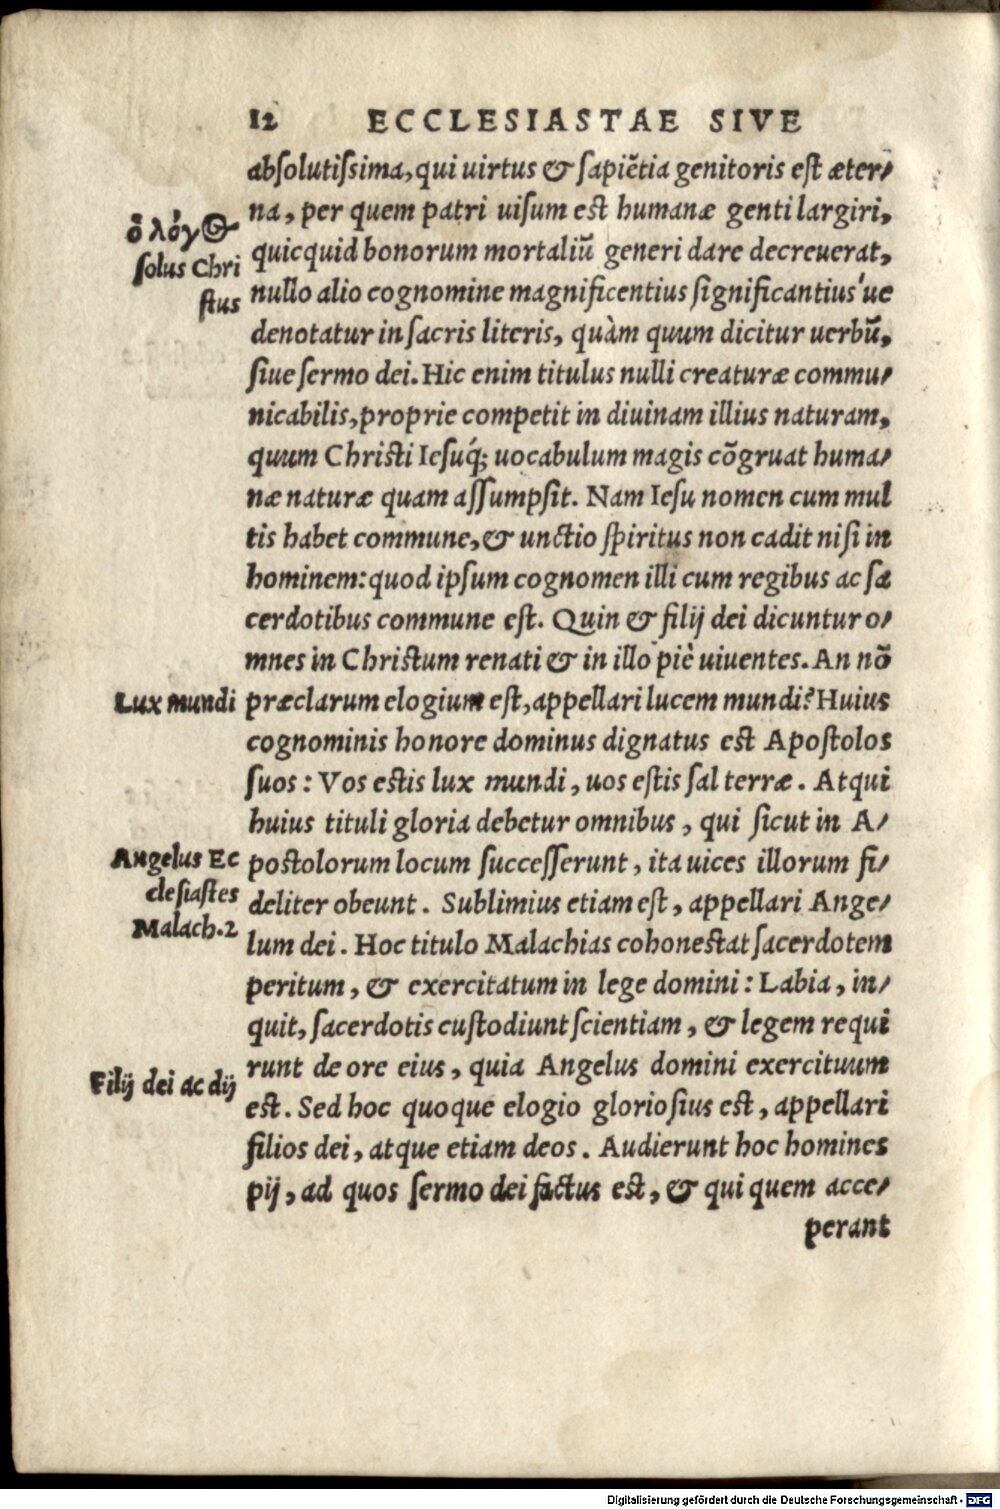 12 ECCLESIASTAE SIVE
abſolutiſsima, qui uirtus & ſapiẽtia genitoris eſt æter/
na, per quem patri uiſum est humanæ genti largiri,
quicquid bonorum mortaliũ generi dare decreuerat,
nullo alio cognomine magnificentius ſignificantius'ue
denotatur in ſacris literis, quàm quum dicitur uerbũ,
ſiue ſermo dei. Hic enim titulus nulli creaturæ commu/
nicabilis, proprie competit in diuinam illius naturam,
quum Christi Ieſuq́; uocabulum magis cõgruat huma/
næ naturæ quam aſſumpſit. Nam Ieſu nomen cum mul
tis habet commune, & unctio ſpiritus non cadit niſi in
hominem: quod ipſum cognomen illi cum regibus ac ſa
cerdotibus commune eſt. Quin & filij dei dicuntur o/
mnes in Christum renati & in illo piè uiuentes. An nõ
præclarum elogium eſt, appellari lucem mundi? Huius
cognominis honore dominus dignatus est Apoſtolos
ſuos: Vos estis lux mundi, uos eſtis ſal terræ. Atqui
huius tituli gloria debetur omnibus, qui ſicut in A/
postolorum locum ſucceſſerunt, ita uices illorum fi/
deliter obeunt. Sublimius etiam eſt, appellari Ange/
lum dei. Hoc titulo Malachias cohonestat ſacerdotem
peritum, & exercitatum in lege domini: Labia, in/
quit, ſacerdotis cuſtodiunt ſcientiam, & legem requi
runt de ore eius, quia Angelus domini exercituum
est. Sed hoc quoque elogio glorioſius est, appellari
filios dei, atque etiam deos. Audierunt hoc homines
pij, ad quos ſermo dei factus est, & qui quem acce/
perant
ὁ λόγος
ſolus Chri
ſtus
Lux mundi
Angelus Ec
cleſiaſtes
Malach.2
Filij dei ac dij
Digitalisierung gefördert durch die Deutsche Forschungsgemeinschaft - DFG